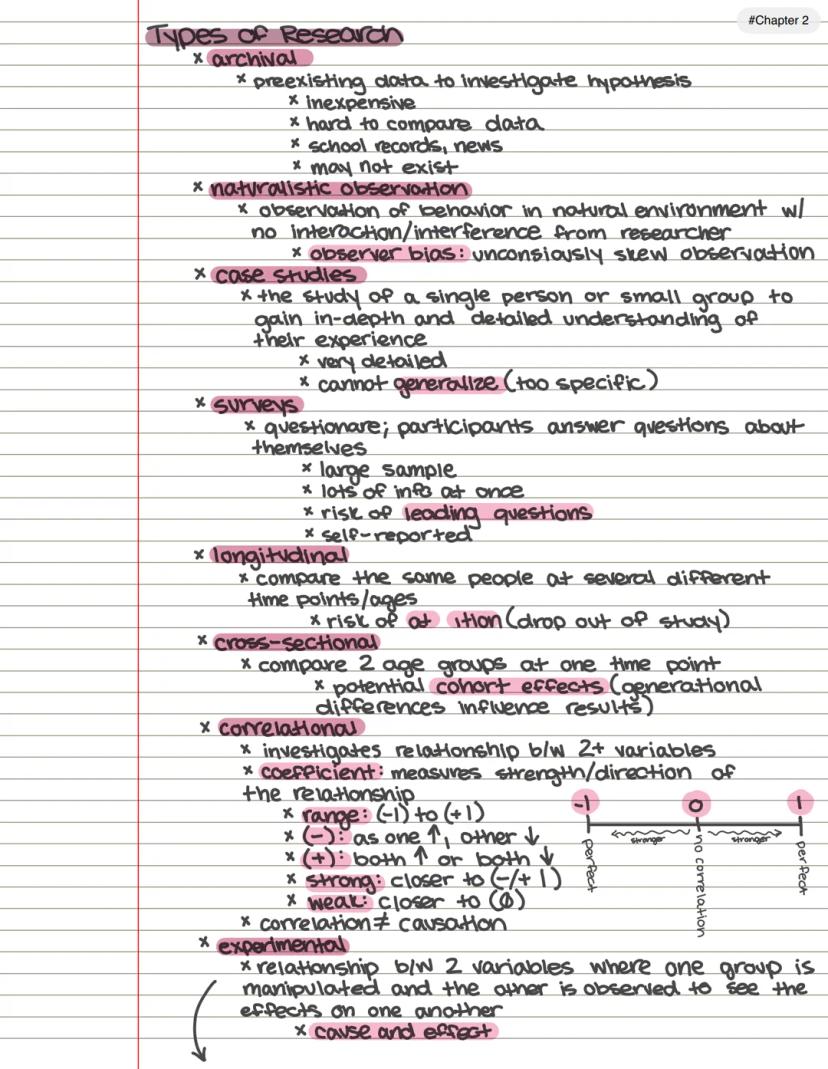 #Chapter 2
Types of Research
x archival
x preexisting data to investigate hypothesis
x inexpensive
x hard to compare data
x school records, news
x may not exist
x naturalistic observation
x observation of behavior in natural environment w/
no interaction/interference from researcher
x observer bias: unconsiously skew observation
x case studies
x the study of a single person or small group to
gain in-depth and detailed understanding of
their experience
x very detailed
x cannot generalize (too specific)
x surveys
x questionare; participants answer questions about
themselves
x large sample
x lots of info at once
x risk of leading questions
x self-reported
x longitudinal
x compare the same people at several different
time points/ages
x risk of at ition (drop out of study)
x cross-sectional
x compare 2 age groups at one time point
x potential cohort effects (generational
differences influence results)
x correlational
x investigates relationship b/w 2+ variables
x coefficient: measures strength/direction of
the relationship
x range: (-1) to (+1)
x (-): as one ↑, other ↓
x (+): both ↑ or both ↓
x strong: closer to (-/+1)
x weak: closer to (0)
-1 0 1
stronger stronger
perfect
no correlation
perfect
x correlation ≠ causation
x experimental
x relationship b/w 2 variables where one group is
manipulated and the other is observed to see the
effects on one another
x cause and effect